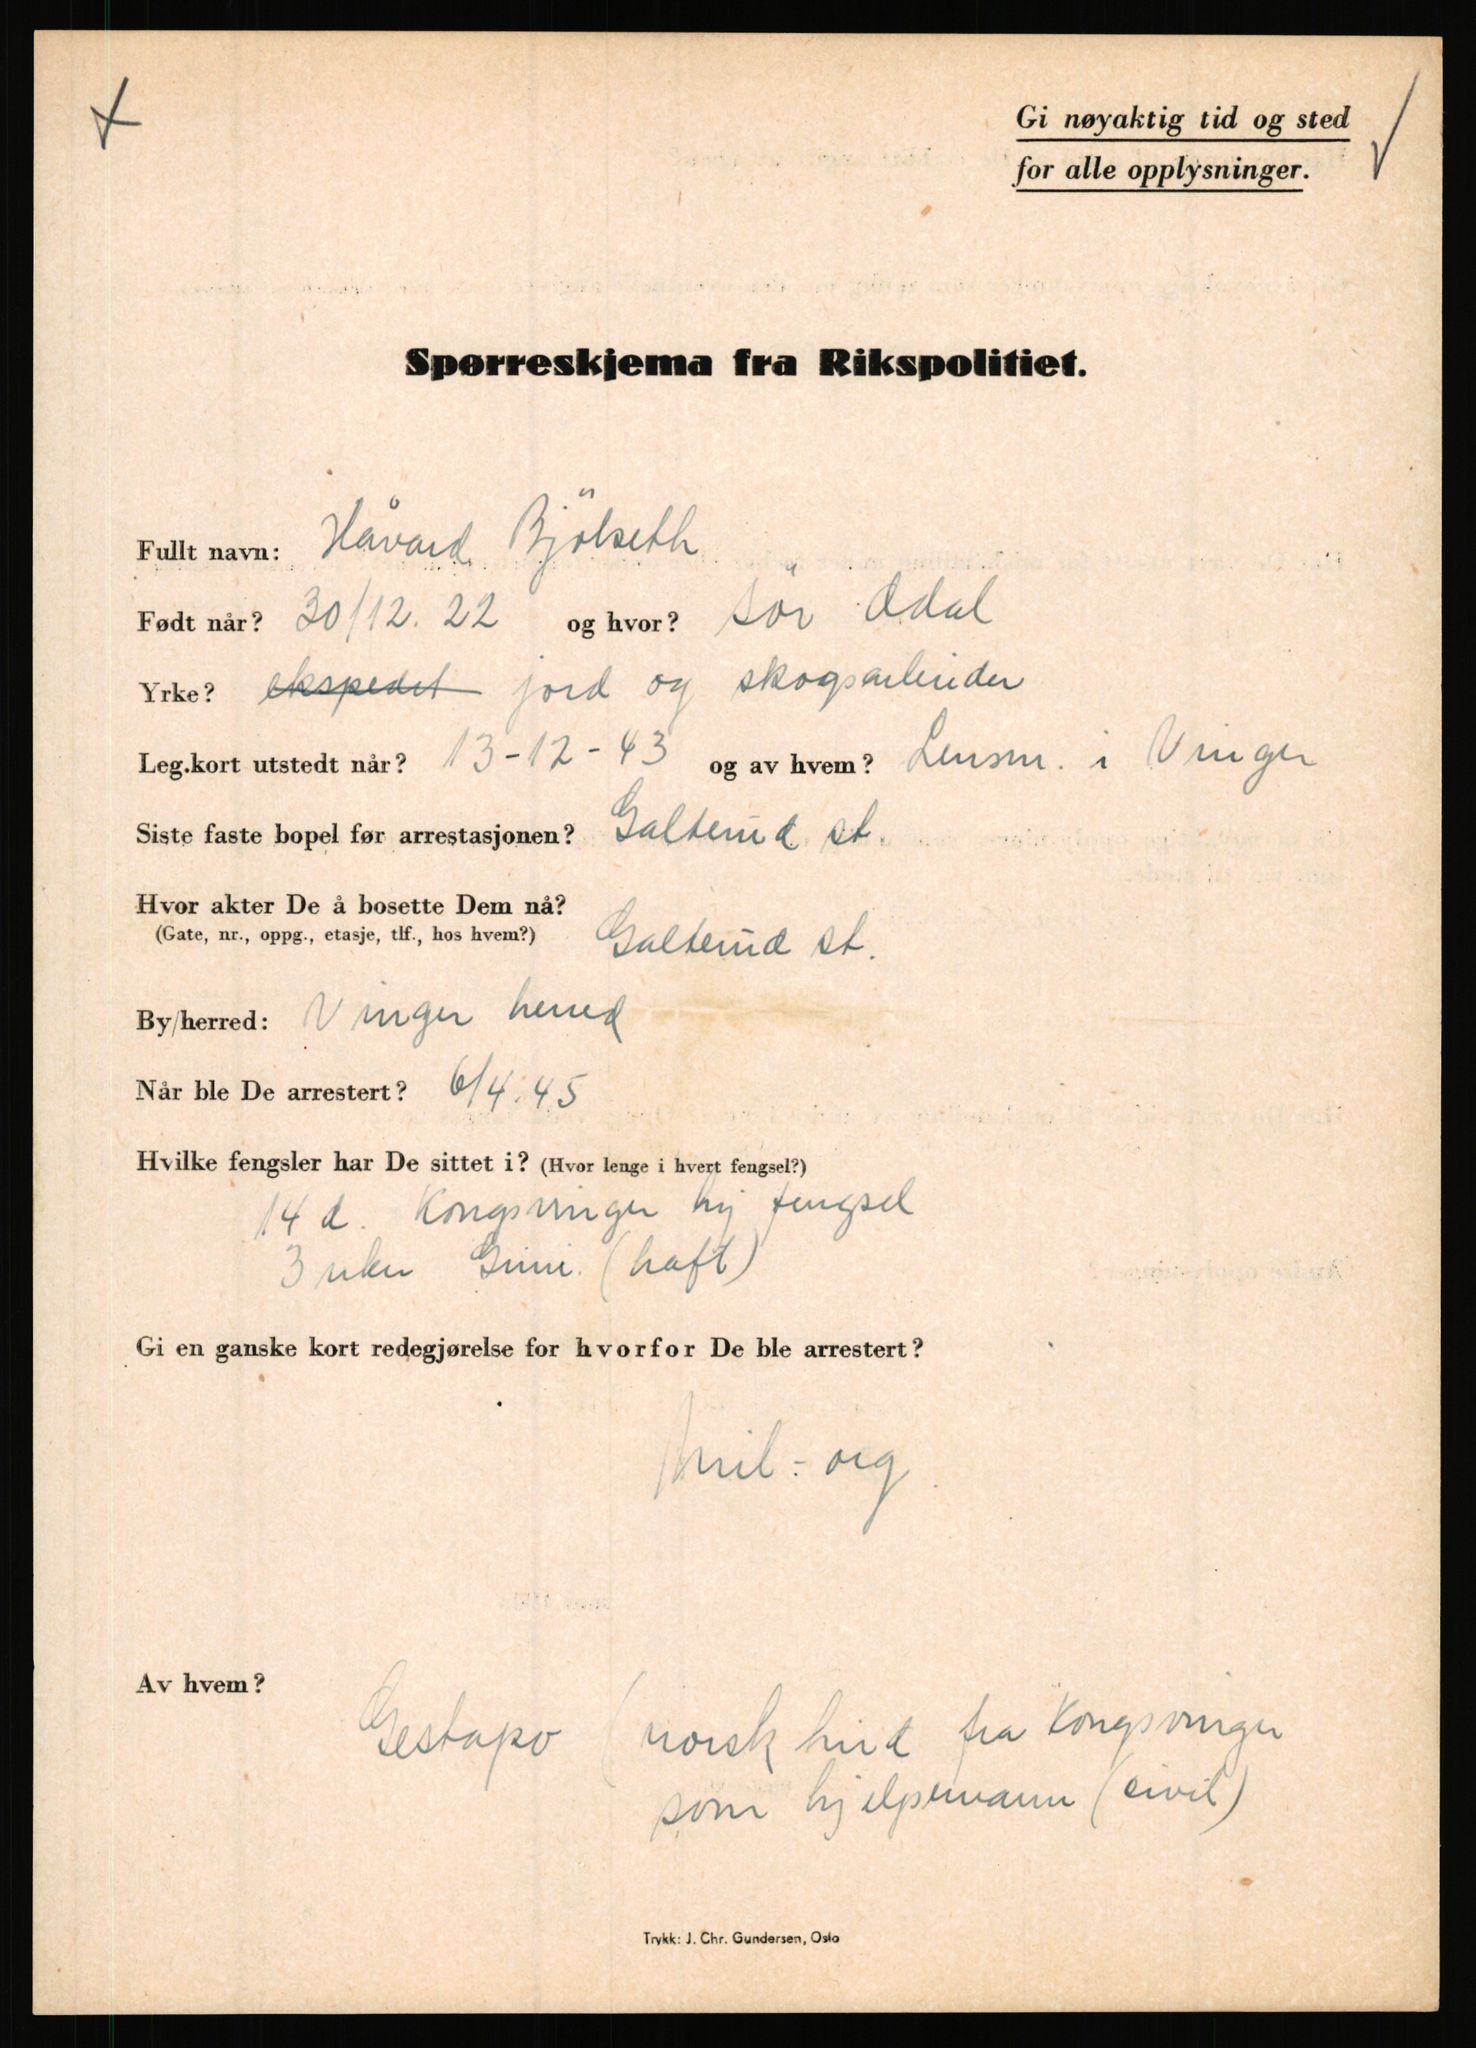 Gi nøyaktig tid og sted
for alle opplysninger.
Spørreskjema fra Rikspolitiet.
Fullt navn: Håvard Bjölseth
Født når? 30/12. 22 og hvor? Sör Odal
Yrke? ekspedet jord og skogsarbeider
Leg.kort utstedt når? 13-12-43 og av hvem? Lensm. i Vinger
Siste faste bopel før arrestasjonen? Galterud st.
Hvor akter De å bosette Dem nå?
(Gate, nr., oppg., etasje, tlf., hos hvem?) Galterud st.
By/herred: Vinger herred
Når ble De arrestert? 6/4.45
Hvilke fengsler har De sittet i? (Hvor lenge i hvert fengsel?)
14 d. Kongsvinger hj fengsel
3 uker Grini. (haft)
Gi en ganske kort redegjørelse for hvorfor De ble arrestert?
mil-org
Av hvem?
Gestapo (norsk hird fra Kongsvinger
som hjelpemann (civil)
Trykk: J. Chr. Gundersen, Oslo